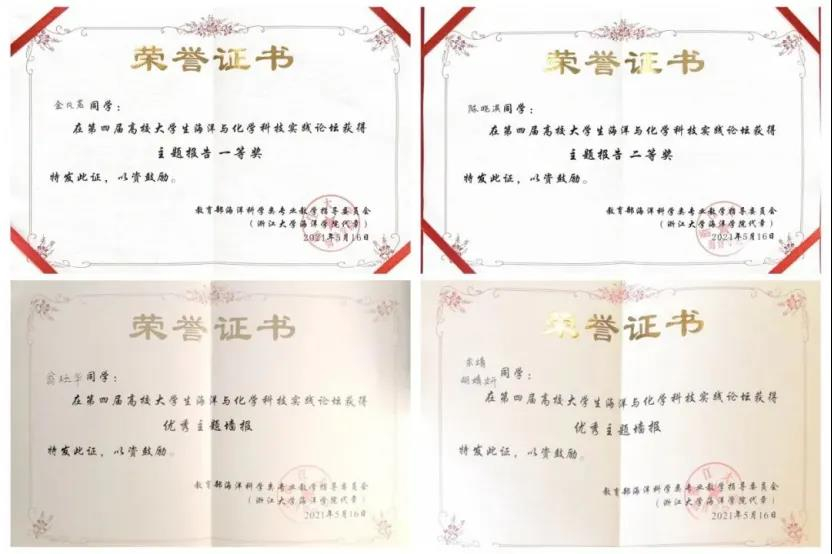 荣誉证书
同学：
在第四届高校大学生海洋与化学科技实践论坛获得
主题报告一等奖
特发此证，以资鼓励。
教育部海洋科学类专业教学指导委员会
（浙江大学海洋学院代章）
2021年5月16日
荣誉证书
陈兆淇同学：
在第四届高校大学生海洋与化学科技实践论坛获得
主题报告二等奖
特发此证，以资鼓励。
教育部海洋科学类专业教学指导委员会
（浙江大学海洋学院代章）
2021年5月16日
荣誉证书
同学：
在第四届高校大学生海洋与化学科技实践论坛获得
优秀主题墙报
特发此证，以资鼓励。
教育部海洋科学类专业教学指导委员会
（浙江大学海洋学院代章）
2021年5月16日
荣誉证书
同学：
在第四届高校大学生海洋与化学科技实践论坛获得
优秀主题墙报
特发此证，以资鼓励。
教育部海洋科学类专业教学指导委员会
（浙江大学海洋学院代章）
2021年5月16日